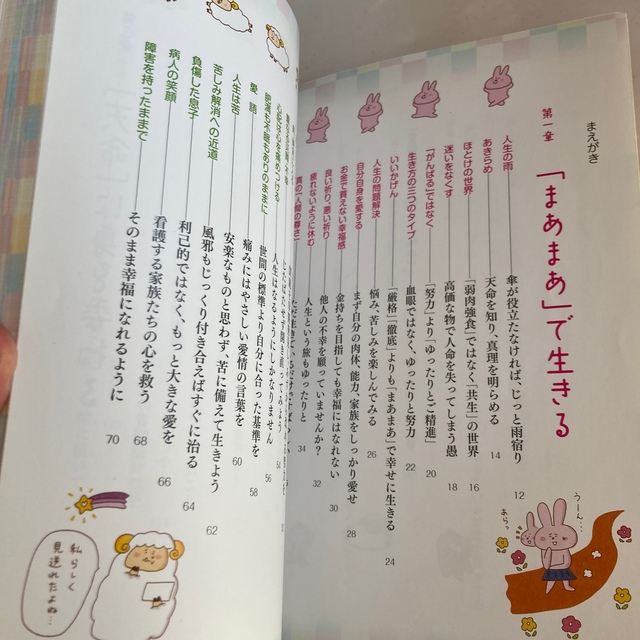 まえがき
第一章
「まあまあ」で生きる
人生の雨――傘が役立たなければ、じっと雨宿り 12
あきらめ――天命を知り、真理を明らめる 14
ほとけの世界――「弱肉強食」ではなく「共生」の世界 16
迷いをなくす――高価な物で人命を失ってしまう愚 18
「がんばる」ではなく――「努力」より「ゆったりとご精進」 20
生き方の三つのタイプ――血眼ではなく、ゆったりと努力 22
いいかげん――「厳格」「徹底」よりも「まあまあ」で幸せに生きる 24
人生の問題解決――悩み、苦しみを楽しんでみる 26
自分自身を愛する――まず自分の肉体、能力、家族をしっかり愛せ 28
お金で買えない幸福感――金持ちを目指しても幸福にはなれない 30
良い祈り、悪い祈り――他人の不幸を願っていませんか? 32
疲れないように休む――人生という旅もゆったりと 34
真の「人間の尊さ」
うーん…
あらっ
人生はなるようにしかなりません
肥満も不眠もありのままに――世間の標準より自分に合った基準を 58
愛語――痛みにはやさしい愛情の言葉を 60
人生は苦――安楽なものと思わず、苦に備えて生きよう 62
苦しみ解消への近道――風邪もじっくり付き合えばすぐに治る 64
負傷した息子――利己的ではなく、もっと大きな愛を 66
病人の笑顔――看護する家族たちの心を救う 68
障害を持ったままで――そのまま幸福になれるように 70
私らしく
見送れたよね…